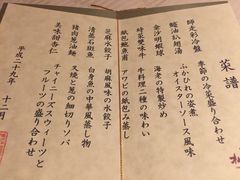 菜譜
師走彩冷盤
季節の冷菜盛り合わせ
鮑油扒翅湯
ふかひれの姿煮
オイスターソース風味
金沙明蝦球
海老の特製炒め
時菜雙味牛
牛料理二種の味わい
紙包鮑魚甫
アワビの紙包み蒸し
芝麻水餃子
胡麻風味の水餃子
清蒸石斑魚
白身魚の中華風蒸し物
猪肉葱油麺
叉焼と葱の細切りソバ
美味謝杏仁
チャイニーズスウィーツと
フルーツの盛り合わせ
平成二十九年 十二月